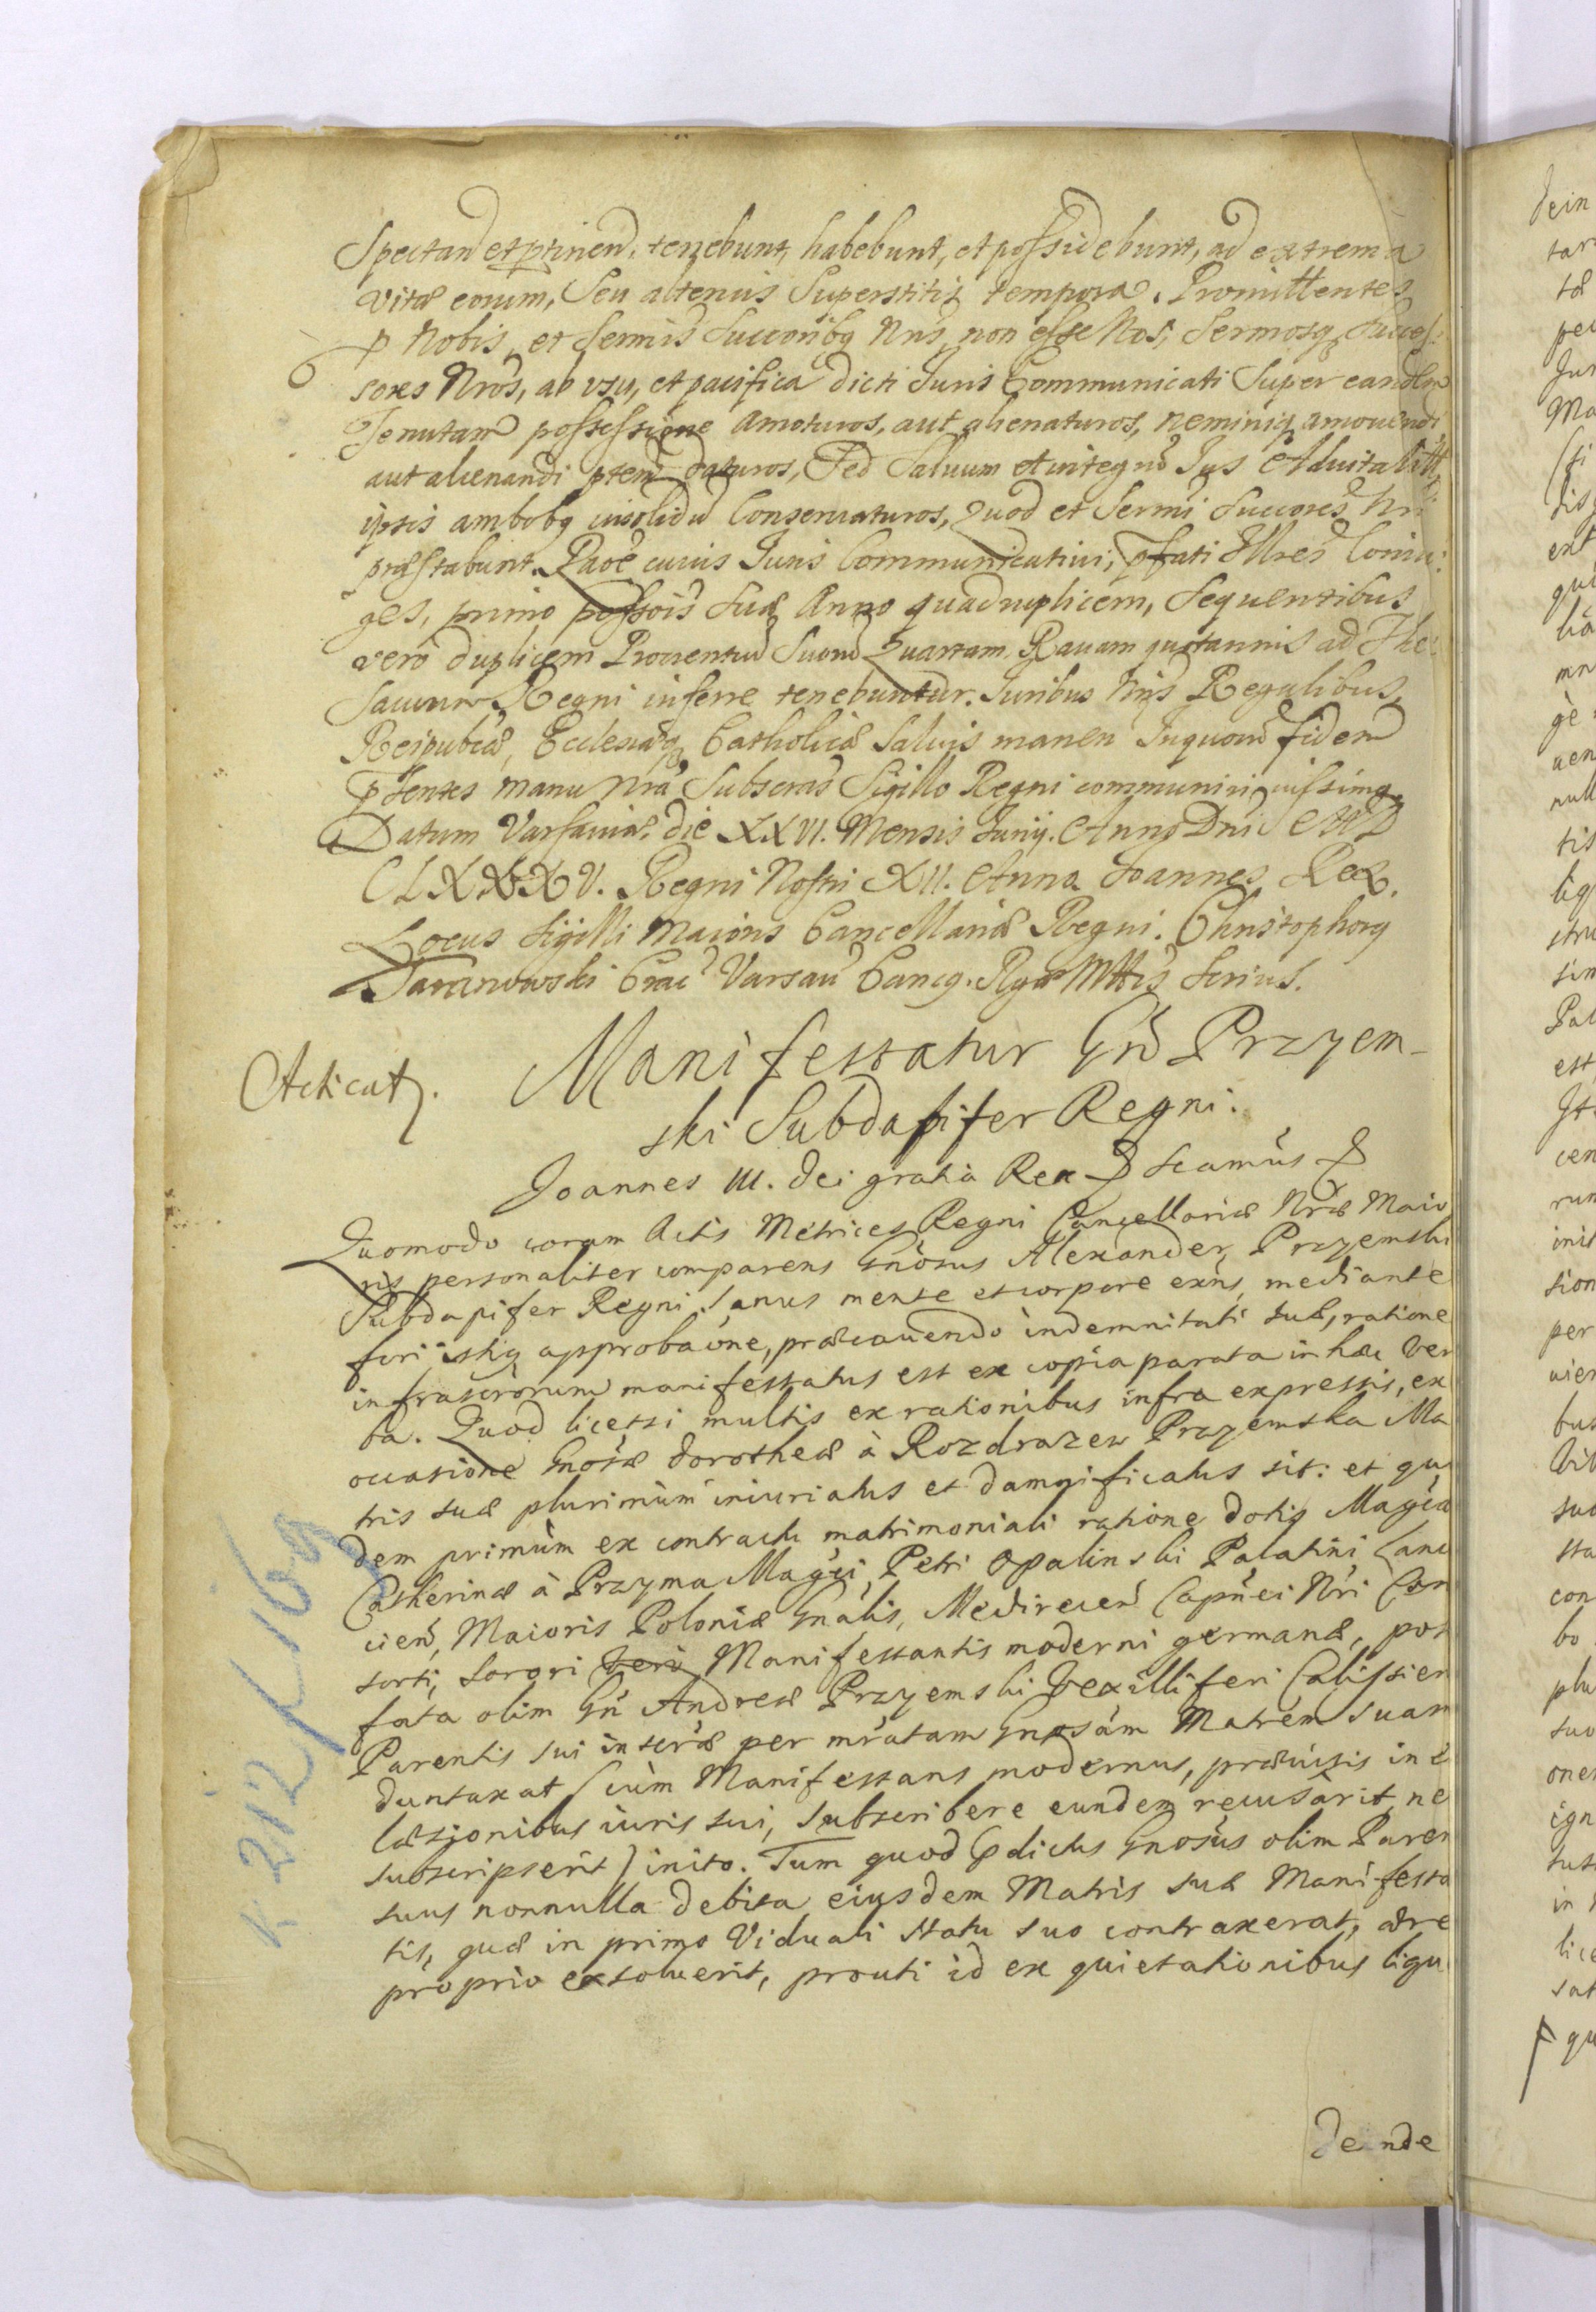 Spectand et ptinend. tenebunt, habebunt, et possidebunt, ad extrema
vitæ eorum, Seu alterius Superstitis tempora. Promittentes
p Nobis, et Sermis Succoribq Nris, non esse Nos, Sermosq Succes:
sores Nros, ab vsu, et pacifica dicti Juris Communicati Super eandem
Tenutam possessione amoturos, aut alienaturos, neminiq amouendi,
aut alienandi ptem daturos, Sed Saluum et integrum Jus Aduitalitt:
ipsis ambobq insolidum Conseruaturos, quod et Sermi Succores Nri
præstabunt. Raoe cuius Juris Communicatiui, pfati Illres Coniu:
ges, primo possois suæ Anno quadruplicem, Sequentibus
vero duplicem Prouentuum Suorum Quartam, Rauam quotannis ad The:
saurum Regni inferre tenebuntur. Juribus Nris Regalibus,
Reipubcæ, Ecclesiæq Catholicæ Saluis manen Inquorum fidem
pntes manu Nra Subscras Sigillo Regni communiri iussimq.
Datum Varsauiæ, die XXVI. Mensis Junij. Anno Dni MD
CLXXXV. Regni Nostri XII. Anno Joannes Rex.
Locus Sigilli Maioris Cancellariæ Regni. Christophorq
Taranowski Crac Varsau Cancq. Rgæ Mttis Scrius.
Acticatq.
Manifestatur Grd Przyem-
ski Subdapifer Regni.
Joannes III. Dei gratia Rex P Scamus P
Quomodo coram Actis Metrices Regni Cancellariæ Nræ Maio
ris personaliter comparens Gnosus Alexander Przyemski
Subdapifer Regni Sanus mente et corpore exns, mediante
fori istiq approbaone, præcauendo indemnitati suæ, ratione
infrascrorum manifestatus est ex copia parata in hæc ver
ba. Quod licetsi multis ex rationibus infra expressis, ex
occasione Gnosæ Dorotheæ à Rozdrazew Przyemska Ma
tris suæ plurimùm iniuriatus et damnificatus sit: et qui
dem primùm ex contractu matrimoniali ratione dotis Magcæ
Catherinæ à Przyma Magci Petri Opalinski Palatini Lanc
cien, Maioris Poloniæ Gnalis, Medirecen Capnei Nri Con
sorti, sorori vero Manifestantis moderni germanæ, post
fata olim Gn Andreæ Przyemski Vexilliferi Calissien
Parentis sui interæ per mratam Gnosam Matrem suam
duntaxat (cùm Manifestans modernus, præuisis in e
læsionibus iuris sui, subscribere eundem recusàrit, ne
subscripserit) inito. Tum quod pdictus Gnosus olim Paren
suus nonnulla debita eiusdem Matris suæ Manifesta
tis, quæ in primo Viduali statu suo contraxerat, ære
proprio exsoluerit, prouti id ex quietationibus liqu
Deinde